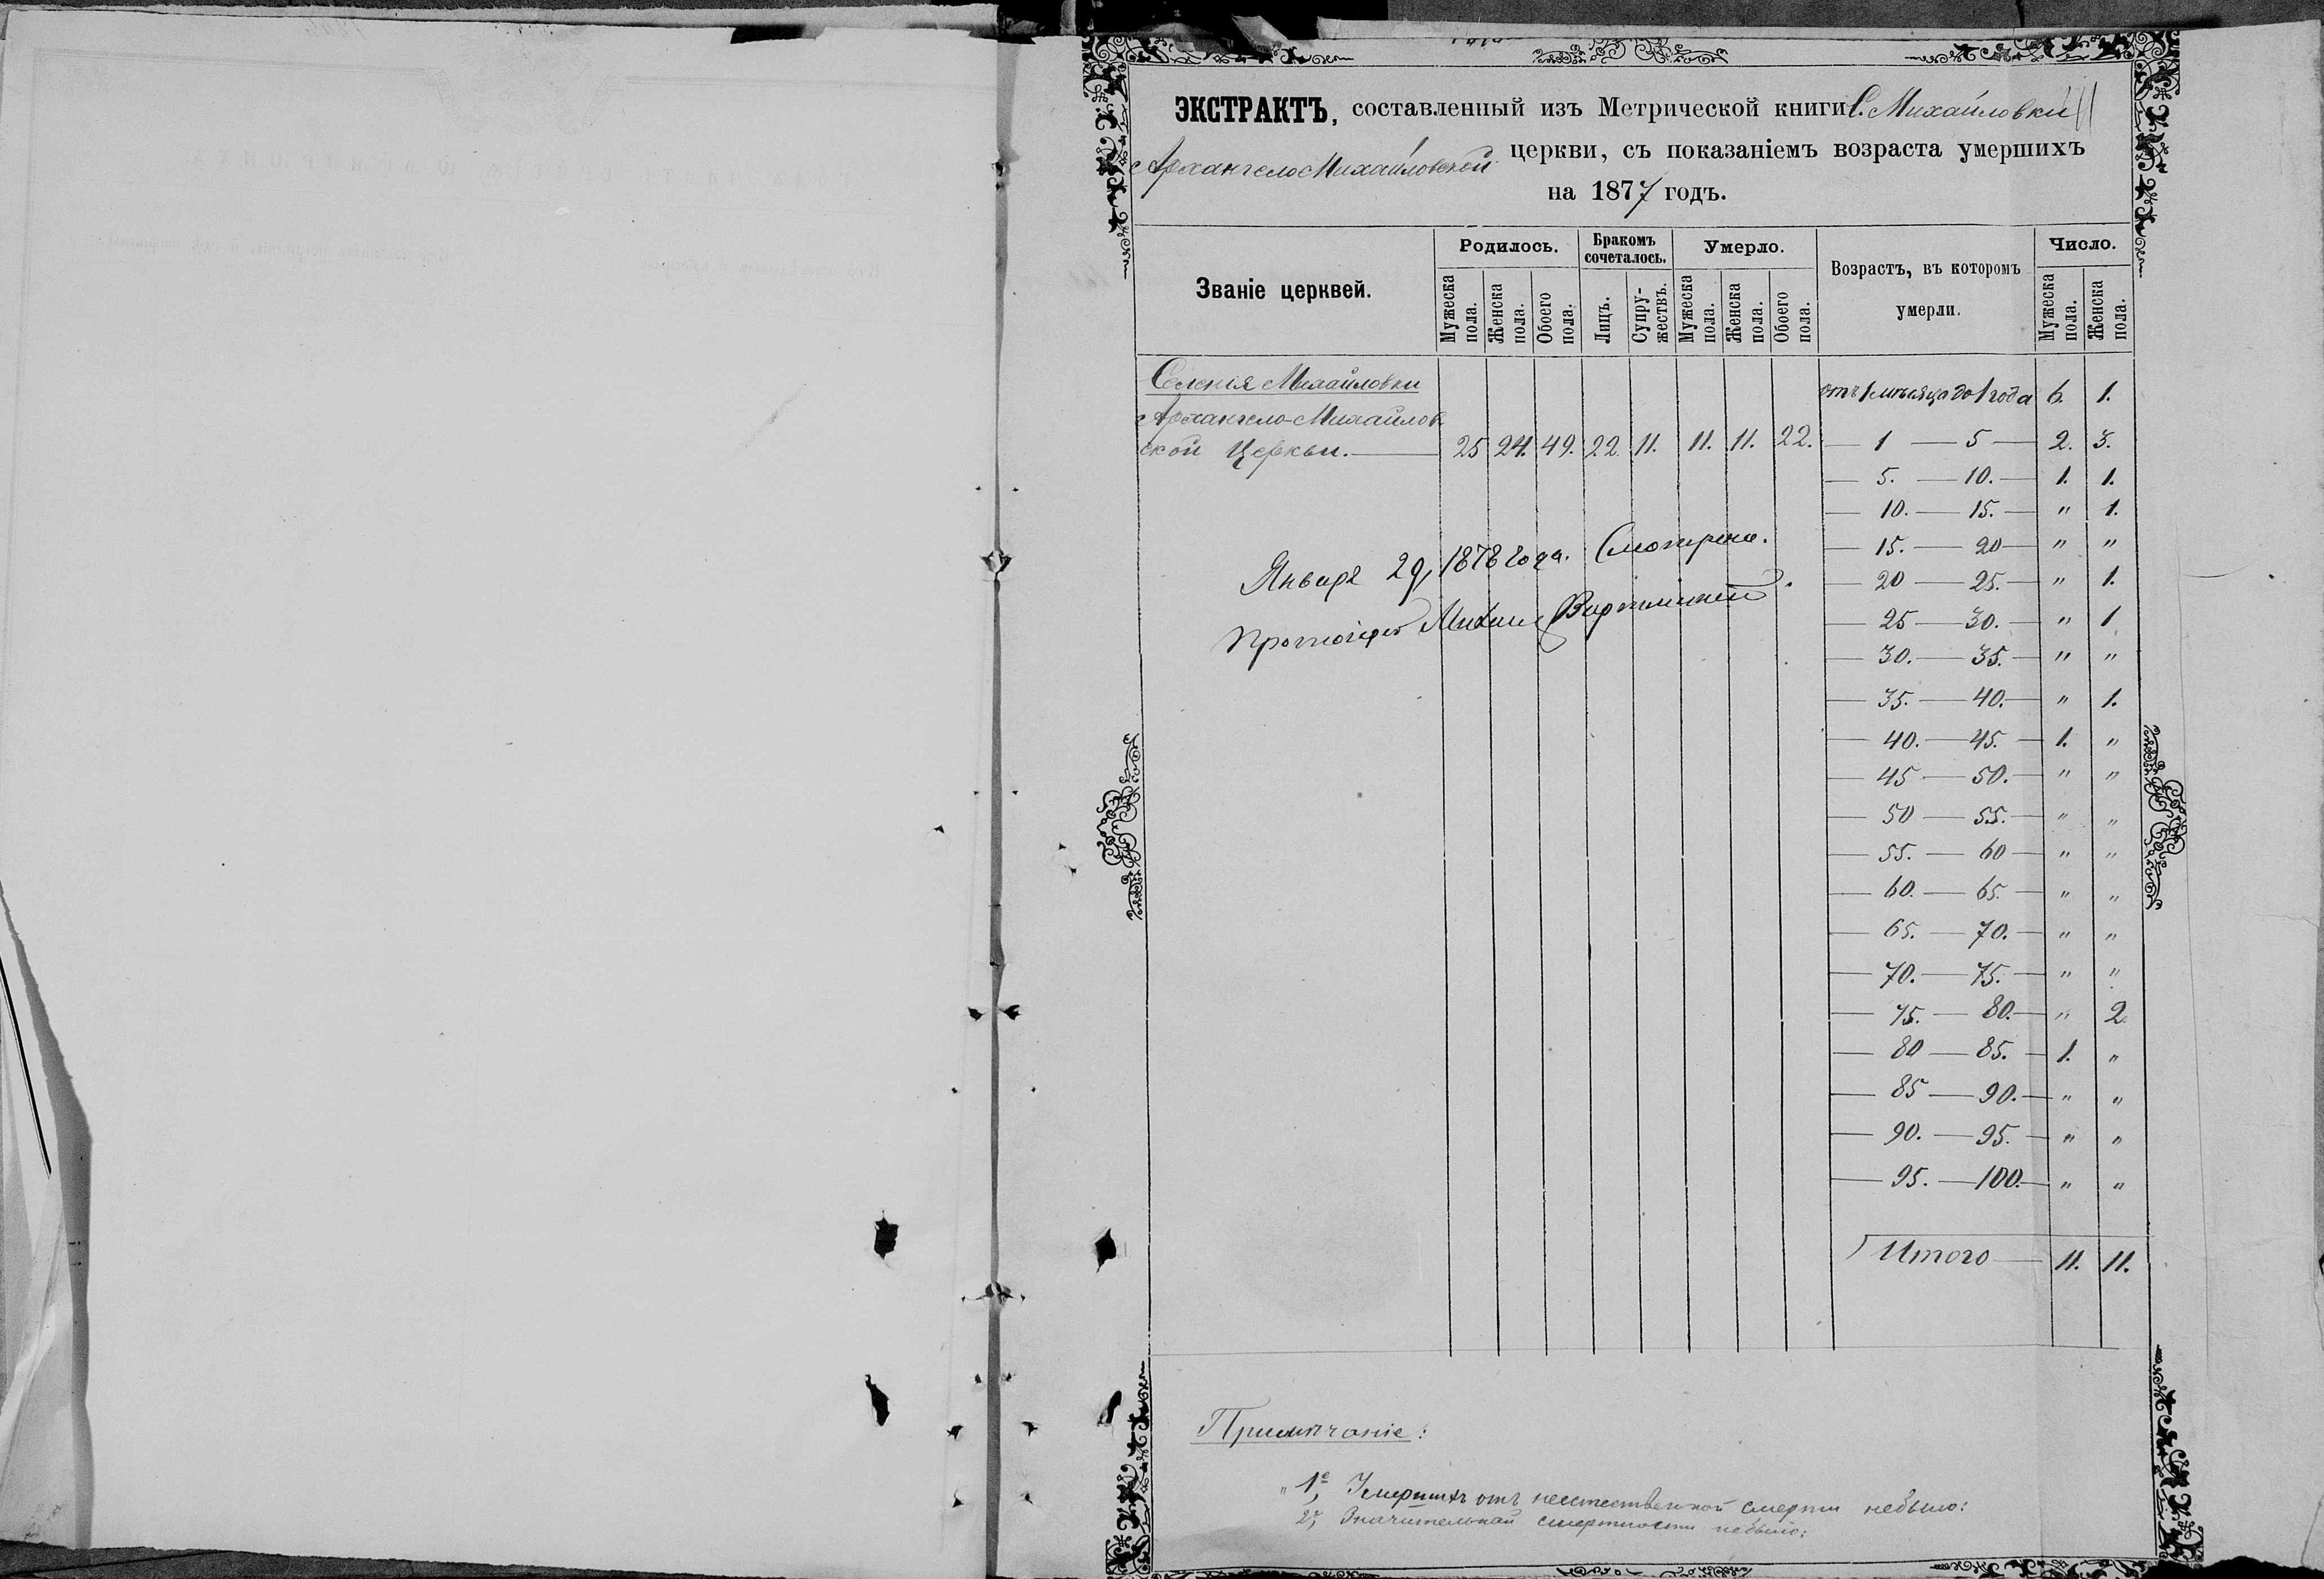 ЭКСТРАКТЪ, составленный изъ Метрической книги С. Михайловки
Архангело Михайловской церкви, съ показаніемъ возраста умершихъ
на 1877 годъ.
Званіе церквей. Родилось. Бракомъ сочеталось. Умерло. Возрастъ, въ которомъ умерли. Число.
Мужеска пола. Женска пола. Обоего пола. Лицъ. Супружествъ. Мужеска пола. Женска пола. Обоего пола. Мужеска пола. Женска пола.
Селенія Михайловки
отъ 1 мѣсяца до 1 года 6. 1.
Архангело-Михайлов
ской Церкви. — 25 24. 49. 22 11. 11. 11. 22. — 1 — 5 — 2. 3.
— 5. — 10. — 1. 1.
— 10. — 15. — " 1.
— 15. — 20 — " "
— 20 — 25. — " 1.
— 25 — 30. — " 1
— 30. — 35. — " "
— 35. — 40. — " 1.
— 40. — 45. — 1. "
— 45 — 50. — " "
— 50 — 55. — " "
— 55. — 60 — " "
— 60. — 65. — " "
— 65. — 70. — " "
— 70. — 75. — " "
— 75. — 80. — " 2.
— 80 — 85. — 1. "
— 85 — 90. — " "
— 90. — 95. — " "
— 95. — 100. — " "
Итого — 11. 11.
Января 29, 1878 года. Смотрено.
Протоіерей Михаил
Примѣчаніе:
" 1е, Умершихъ отъ неестественной смерти небыло:
2е, Значительной смертности небыло: